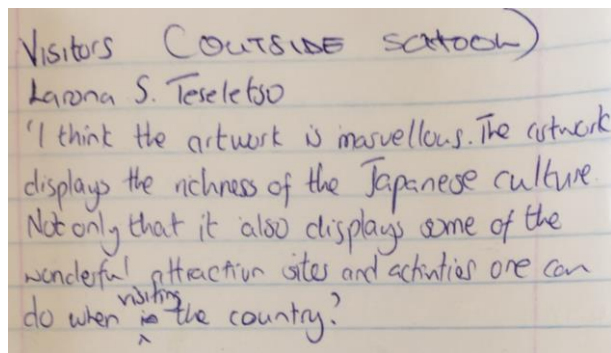 Visitors (OUTSIDE SCHOOL)
Larona S. Teseletso
'I think the artwork is marvellous. The artwork
displays the richness of the Japanese culture.
Not only that it also displays some of the
wonderful attraction sites and activities one can
do when visiting the country?